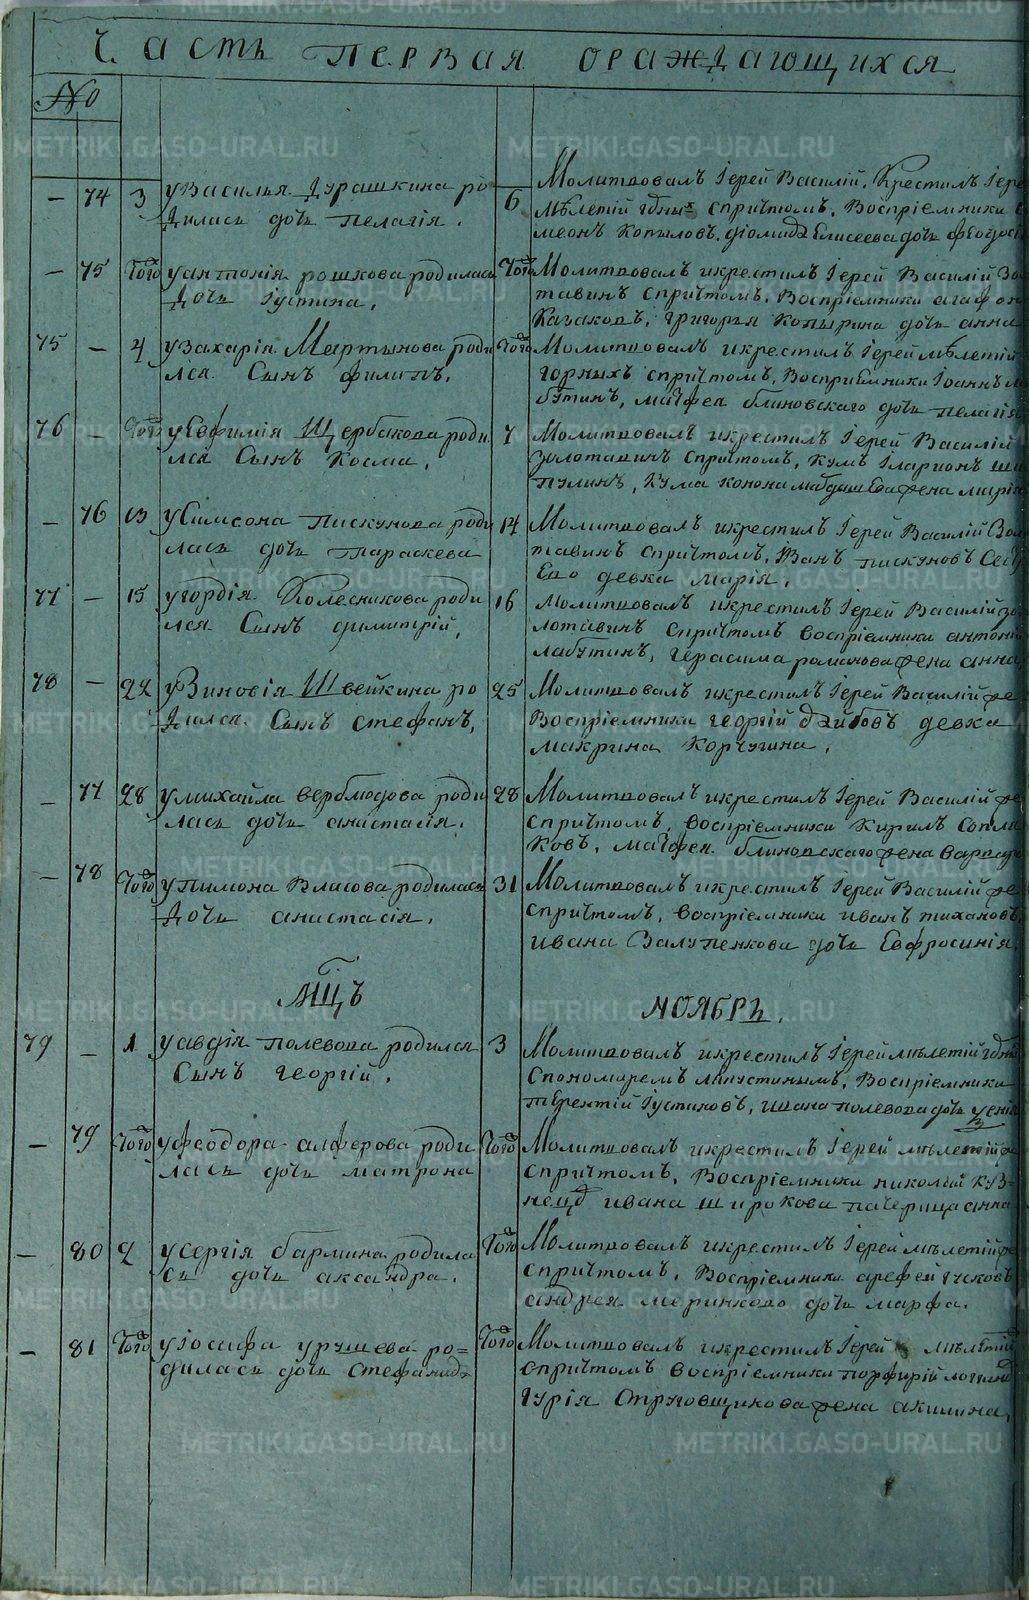 Часть первая ораждающихся
№
74 3 у Василья Дурашкина ро
дилась дочь Пелагія.
6 Молитвовалъ Іерей Василій. Крестилъ Іере
Мѣлетій спричтомъ. Воспріемники
меонъ Копылов. діомида Елисеева дочь
75 Того у антонія рошкова родилась
Дочь Іустина.
Того Молитвовалъ икрестилъ Іерей Василій Зо
тавинъ спричтомъ. Воспріемники агафон
Казаковъ, григорья Копырина дочь анна
75 4 у захарія Мартынова роди
лся Сынъ филипъ.
Того Молитвовалъ икрестилъ Іерей мѣлетій
горныхъ спричтомъ, Воспріемники Іоаннъ ла
бутинъ, матфея блиновскаго дочь пелагія
76 Того у Евфимія Щербакова роди
лся Сынъ Косма.
7 Молитвовалъ икрестилъ Іерей Василій
Золотавинъ спричтомъ, Кумъ Іларионъ ши
пулинъ, Кума
76 13 у Самсона Пискунова роди
лась дочь параскева
14 Молитвовалъ икрестилъ Іерей Василій Зол
тавинъ спричтомъ, Иванъ пискуновъ Сест
Его девка марія.
77 15 у гордія Колесникова роди
лся Сынъ димитрій,
16 Молитвовалъ икрестилъ Іерей Василій зо
лотавинъ спричтомъ воспріемники антоній
лабутинъ, герасима романова жена анна
78 22 у Зиновія Швейкина ро
дился Сынъ стефанъ,
25 Молитвовалъ икрестилъ Іерей Василій же
Воспріемники георгій девка
макрина Корчугина.
77 28 у михайла верблюдова роди
лась дочь анастасія.
28 Молитвовалъ икрестилъ Іерей Василій же
спричтомъ, воспріемники Кирилъ Сопля
ковъ, матфея блиновскаго жена варвар
78 Того у Пимона Власова родилась
Дочь анастасія.
31 Молитвовалъ икрестилъ Іерей Василій же
спричтомъ, воспріемники иванъ тихановъ
ивана Залупенкова дочь Евфросинія.
Мцъ ноябрь.
79 1 у авдія полевова родился
Сынъ георгій.
3 Молитвовалъ икрестилъ Іерей мѣлетій
Спономаремъ лапустинымъ, Воспріемники
терентій Іустиновъ, ивана полевова дочь
79 Того у феодора алферова роди
лась дочь матрона
Того Молитвовалъ икрестилъ Іерей мѣлетій же
спричтомъ, Воспріемники николай Куз-
нецов ивана широкова патерица анна
80 2 у сергія бармина родила
сь дочь аксандра.
Того Молитвовалъ икрестилъ Іерей мѣлетій же
спричтомъ, Воспріемники арефей гусковъ
андрея меринково дочь марфа.
81 Того у іосифа урушева ро=
дилась дочь Стефанида
Того Молитвовалъ икрестилъ Іерей мѣлетій
спричтомъ воспріемники порфирій логинов
гурія Струговщикова жена акилина,
METRIKI.GASO-URAL.RU